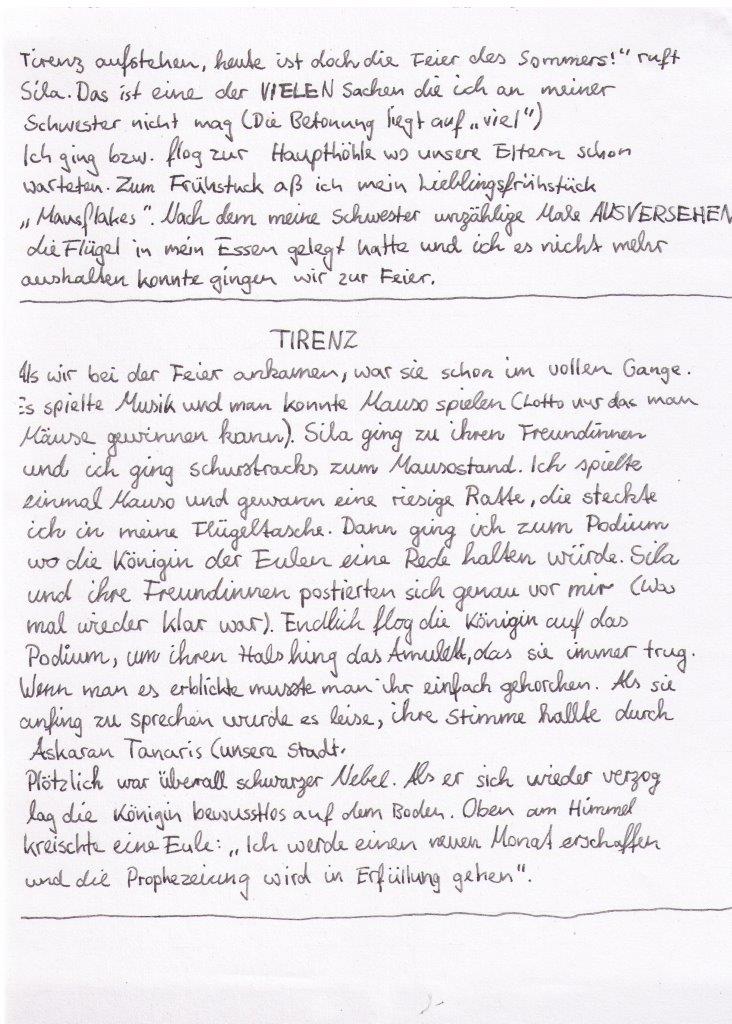 Tirenz aufstehen, heute ist doch die Feier des Sommers!" ruft
Sila. Das ist eine der VIELEN Sachen die ich an meiner
Schwester nicht mag (Die Betonung liegt auf „viel")
Ich ging bzw. flog zur Haupthöhle wo unsere Eltern schon
warteten. Zum Frühstuck aß ich mein Lieblingsfrühstück
„Mausflakes". Nach dem meine Schwester unzählige Male AUSVERSEHEN
die Flügel in mein Essen gelegt hatte und ich es nicht mehr
aushalten konnte gingen wir zur Feier.
TIRENZ
Als wir bei der Feier ankamen, war sie schon im vollen Gange.
Es spielte Musik und man konnte Mauso spielen (Lotto nur das man
Mäuse gewinnen kann). Sila ging zu ihren Freundinnen
und ich ging schurstracks zum Mausostand. Ich spielte
einmal Mauso und gewann eine riesige Ratte, die steckte
ich in meine Flügeltasche. Dann ging ich zum Podium
wo die Königin der Eulen eine Rede halten würde. Sila
und ihre Freundinnen postierten sich genau vor mir (Was
mal wieder klar war). Endlich flog die Königin auf das
Podium, um ihren Hals hing das Amulett, das sie immer trug.
Wenn man es erblickte musste man ihr einfach gehorchen. Als sie
anfing zu sprechen wurde es leise, ihre Stimme hallte durch
Askaran Tanaris (unsere Stadt.
Plötzlich war überall schwarzer Nebel. Als er sich wieder verzog
lag die Königin bewusstlos auf dem Boden. Oben am Himmel
kreischte eine Eule: „Ich werde einen neuen Monat erschaffen
und die Prophezeiung wird in Erfüllung gehen".